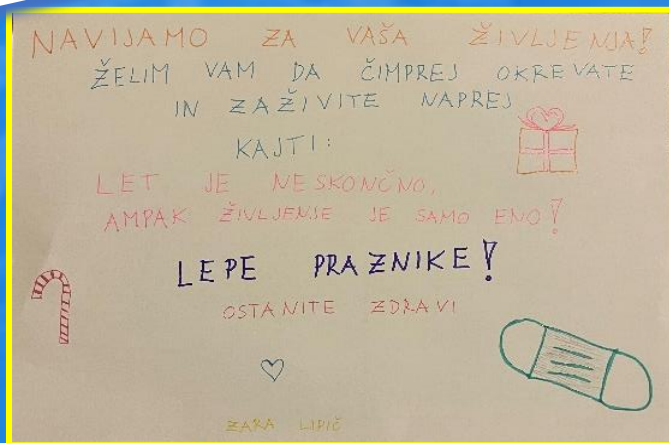 NAVIJAMO ZA VAŠA ŽIVLJENJA!
ŽELIM VAM DA ČIMPREJ OKREVATE
IN ZAŽIVITE NAPREJ
KAJTI:
LET JE NESKONČNO,
AMPAK ŽIVLJENJE JE SAMO ENO!
LEPE PRAZNIKE!
OSTANITE ZDRAVI
ZARA LIPIČ